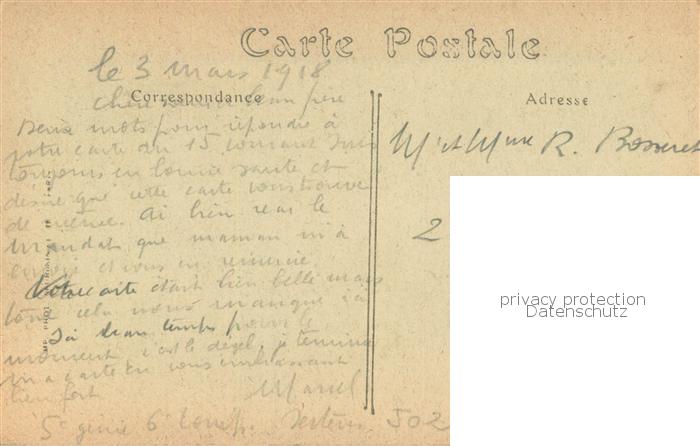 Carte Postale
le 3 mars 1918
Correspondance
Adresse
beau frère
Deux mots pour répondre à
votre carte du 15 courant suis
toujours en bonne santé et
désire que cette carte vous trouve
de même. Ai bien reçu le
mandat que maman m'a
envoyé et vous en remercie.
Votre carte était bien belle mais
tout cela nous manque ici
Ici beau temps pour le
moment c'est le dégel. je termine
ma carte en vous embrassant
bien fort
Marcel
5e génie 6e Comp. Secteur 502
Mr et Mme R. Bosseret
2
privacy protection
Datenschutz